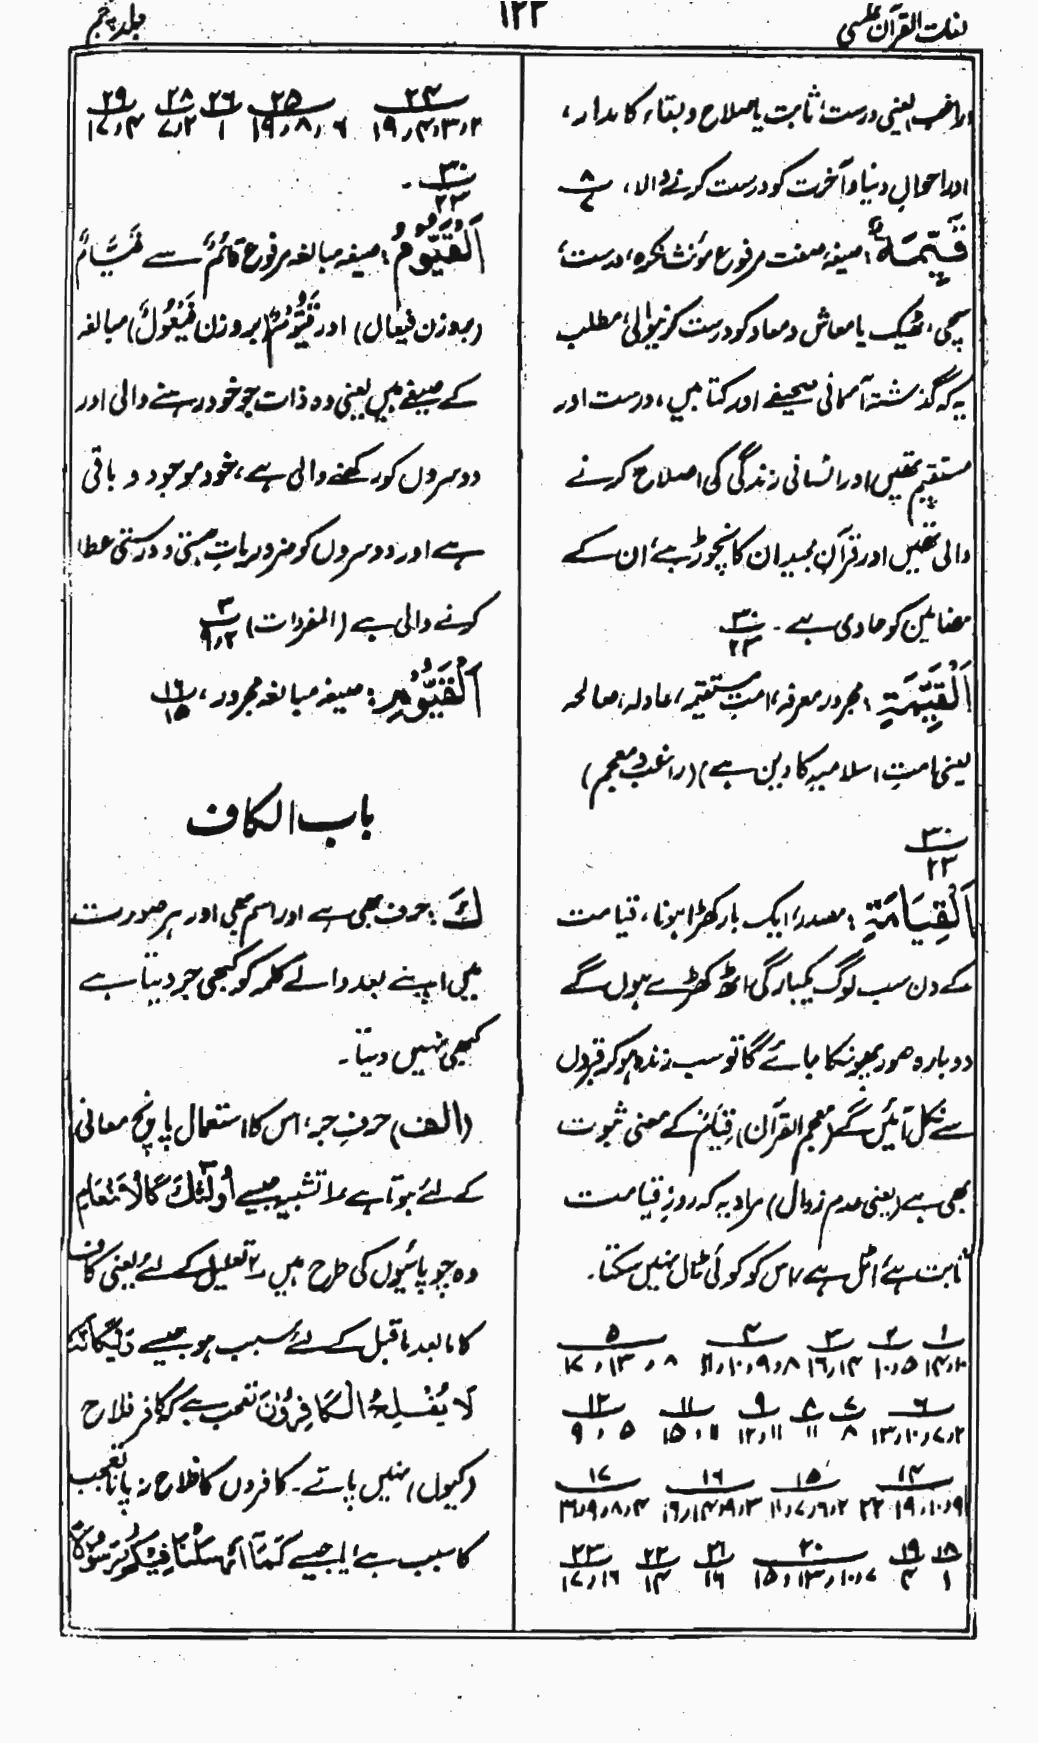 لغات القرآن علسی
۱۲۳
جلد پنجم
(راغب) یعنی درست، ثابت یا صلاح و بقاء کا مدار،
اور احوالِ دنیا و آخرت کو درست کرنے والا، ۸/۷
قَیِّمَةٌ: صیغہ صفت مرفوع مؤنث نکرہ، درست،
سچی، ٹھیک یا معاش و معاد کو درست کرنیوالی، مطلب
یہ کہ گذشتہ آسمانی صحیفے اور کتابیں، درست اور
مستقیم تھیں اور انسانی زندگی کی اصلاح کرنے
والی تھیں اور قرآن مجید ان کا نچوڑ ہے، ان کے
مضامین کو حاوی ہے۔ ۳۰/۲۳
اَلْقَیِّمَةِ: مجرور معرفہ، امتِ مستقیمہ، عادلہ، صالحہ
یعنی امتِ اسلامیہ کا دین ہے) (راغب و معجم)
۳۰/۲۳
اَلْقِیَامَةِ: مصدر، ایک بار کھڑا ہونا، قیامت
کے دن سب لوگ یکبارگی اٹھ کھڑے ہوں گے
دوبارہ صور پھونکا جائے گا تو سب زندہ ہو کر قبروں
سے نکل آئیں گے (معجم القرآن) قِیَامٌ کے معنی ثبوت
بھی ہے (یعنی عدم زوال) مراد یہ کہ روزِ قیامت
ثابت ہے، اٹل ہے، اس کو کوئی ٹال نہیں سکتا۔
۱ ۲ ۳ ۴ ۵
۱۰،۱۴ ۵،۱۰ ۱۴،۱۶ ۸،۹،۱۰،۱۱ ۸،۱۳،۱۷
۶ ۷ ۸ ۹ ۱۱ ۱۲
۲،۷،۱۰،۱۳ ۸ ۱۱ ۱۱،۱۲ ۱۱،۱۵ ۵،۹
۱۴ ۱۵ ۱۶ ۱۷
۹،۱۰،۱۹،۲۲ ۲،۶،۷،۱۱ ۳،۱۹،۱۴،۱۶ ۴،۸،۹،۱۶
۱۸ ۱۹ ۲۰ ۲۱ ۲۲ ۲۳
۱ ۴ ۷،۱۰،۱۳،۱۵ ۱۶ ۱۴ ۱۶،۱۷
۲۴ ۲۵ ۲۶ ۲۸ ۲۹
۲،۳،۴،۱۹ ۶،۸،۱۹ ۱ ۲،۷ ۴،۱۷
۳۰/۲۳۔
اَلْقَیُّوْمُ: صیغہ مبالغہ مرفوع قَائِمٌ سے قَیَّامٌ
(بروزن فیعال) اور قَیُّوْمٌ (بروزن فَیْعُوْلٌ) مبالغہ
کے صیغے ہیں یعنی وہ ذات جو خود رہنے والی اور
دوسروں کو رکھنے والی ہے، خود موجود و باقی
ہے اور دوسروں کو ضروریاتِ ہستی و درستی عطا
کرنے والی ہے (المفردات) ۳/۲،۹
اَلْقَیُّوْمِ: صیغہ مبالغہ مجرور، ۱۶/۱۵
باب الکاف
كَ: حرف بھی ہے اور اسم بھی اور ہر صورت
میں اپنے بعد والے کلمہ کو کبھی جر دیتا ہے
کبھی نہیں دیتا۔
(الف) حرفِ جر، اس کا استعمال پانچ معانی
کے لئے ہوتا ہے ۱ تشبیہ جیسے اُولٰٓئِكَ كَالْاَنْعَامِ
وہ چوپائیوں کی طرح ہیں ۲ تعلیل کے لئے یعنی کاف
کا مابعد ماقبل کے لئے سبب ہو جیسے وَیْكَاَنَّهٗ
لَا یُفْلِحُ الْكَافِرُوْنَ تعجب ہے کہ کافر فلاح
(کیوں) نہیں پاتے۔ کافروں کا فلاح نہ پانا تعجب
کا سبب ہے یا جیسے كَمَآ اَرْسَلْنَا فِیْكُمْ رَسُوْلًا